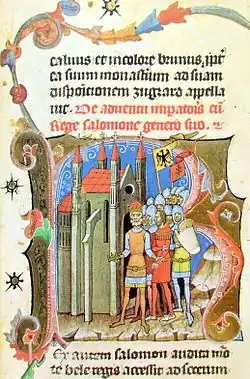 caluus et in colore brunus, ppt
ea suum monasterium ad suam
dispositionem zugzard appella
uit. De aduentu imperatoris cum
Rege salomone genero suo.
Ex autem salomon audita mor
te bele regis accessit ad socerum